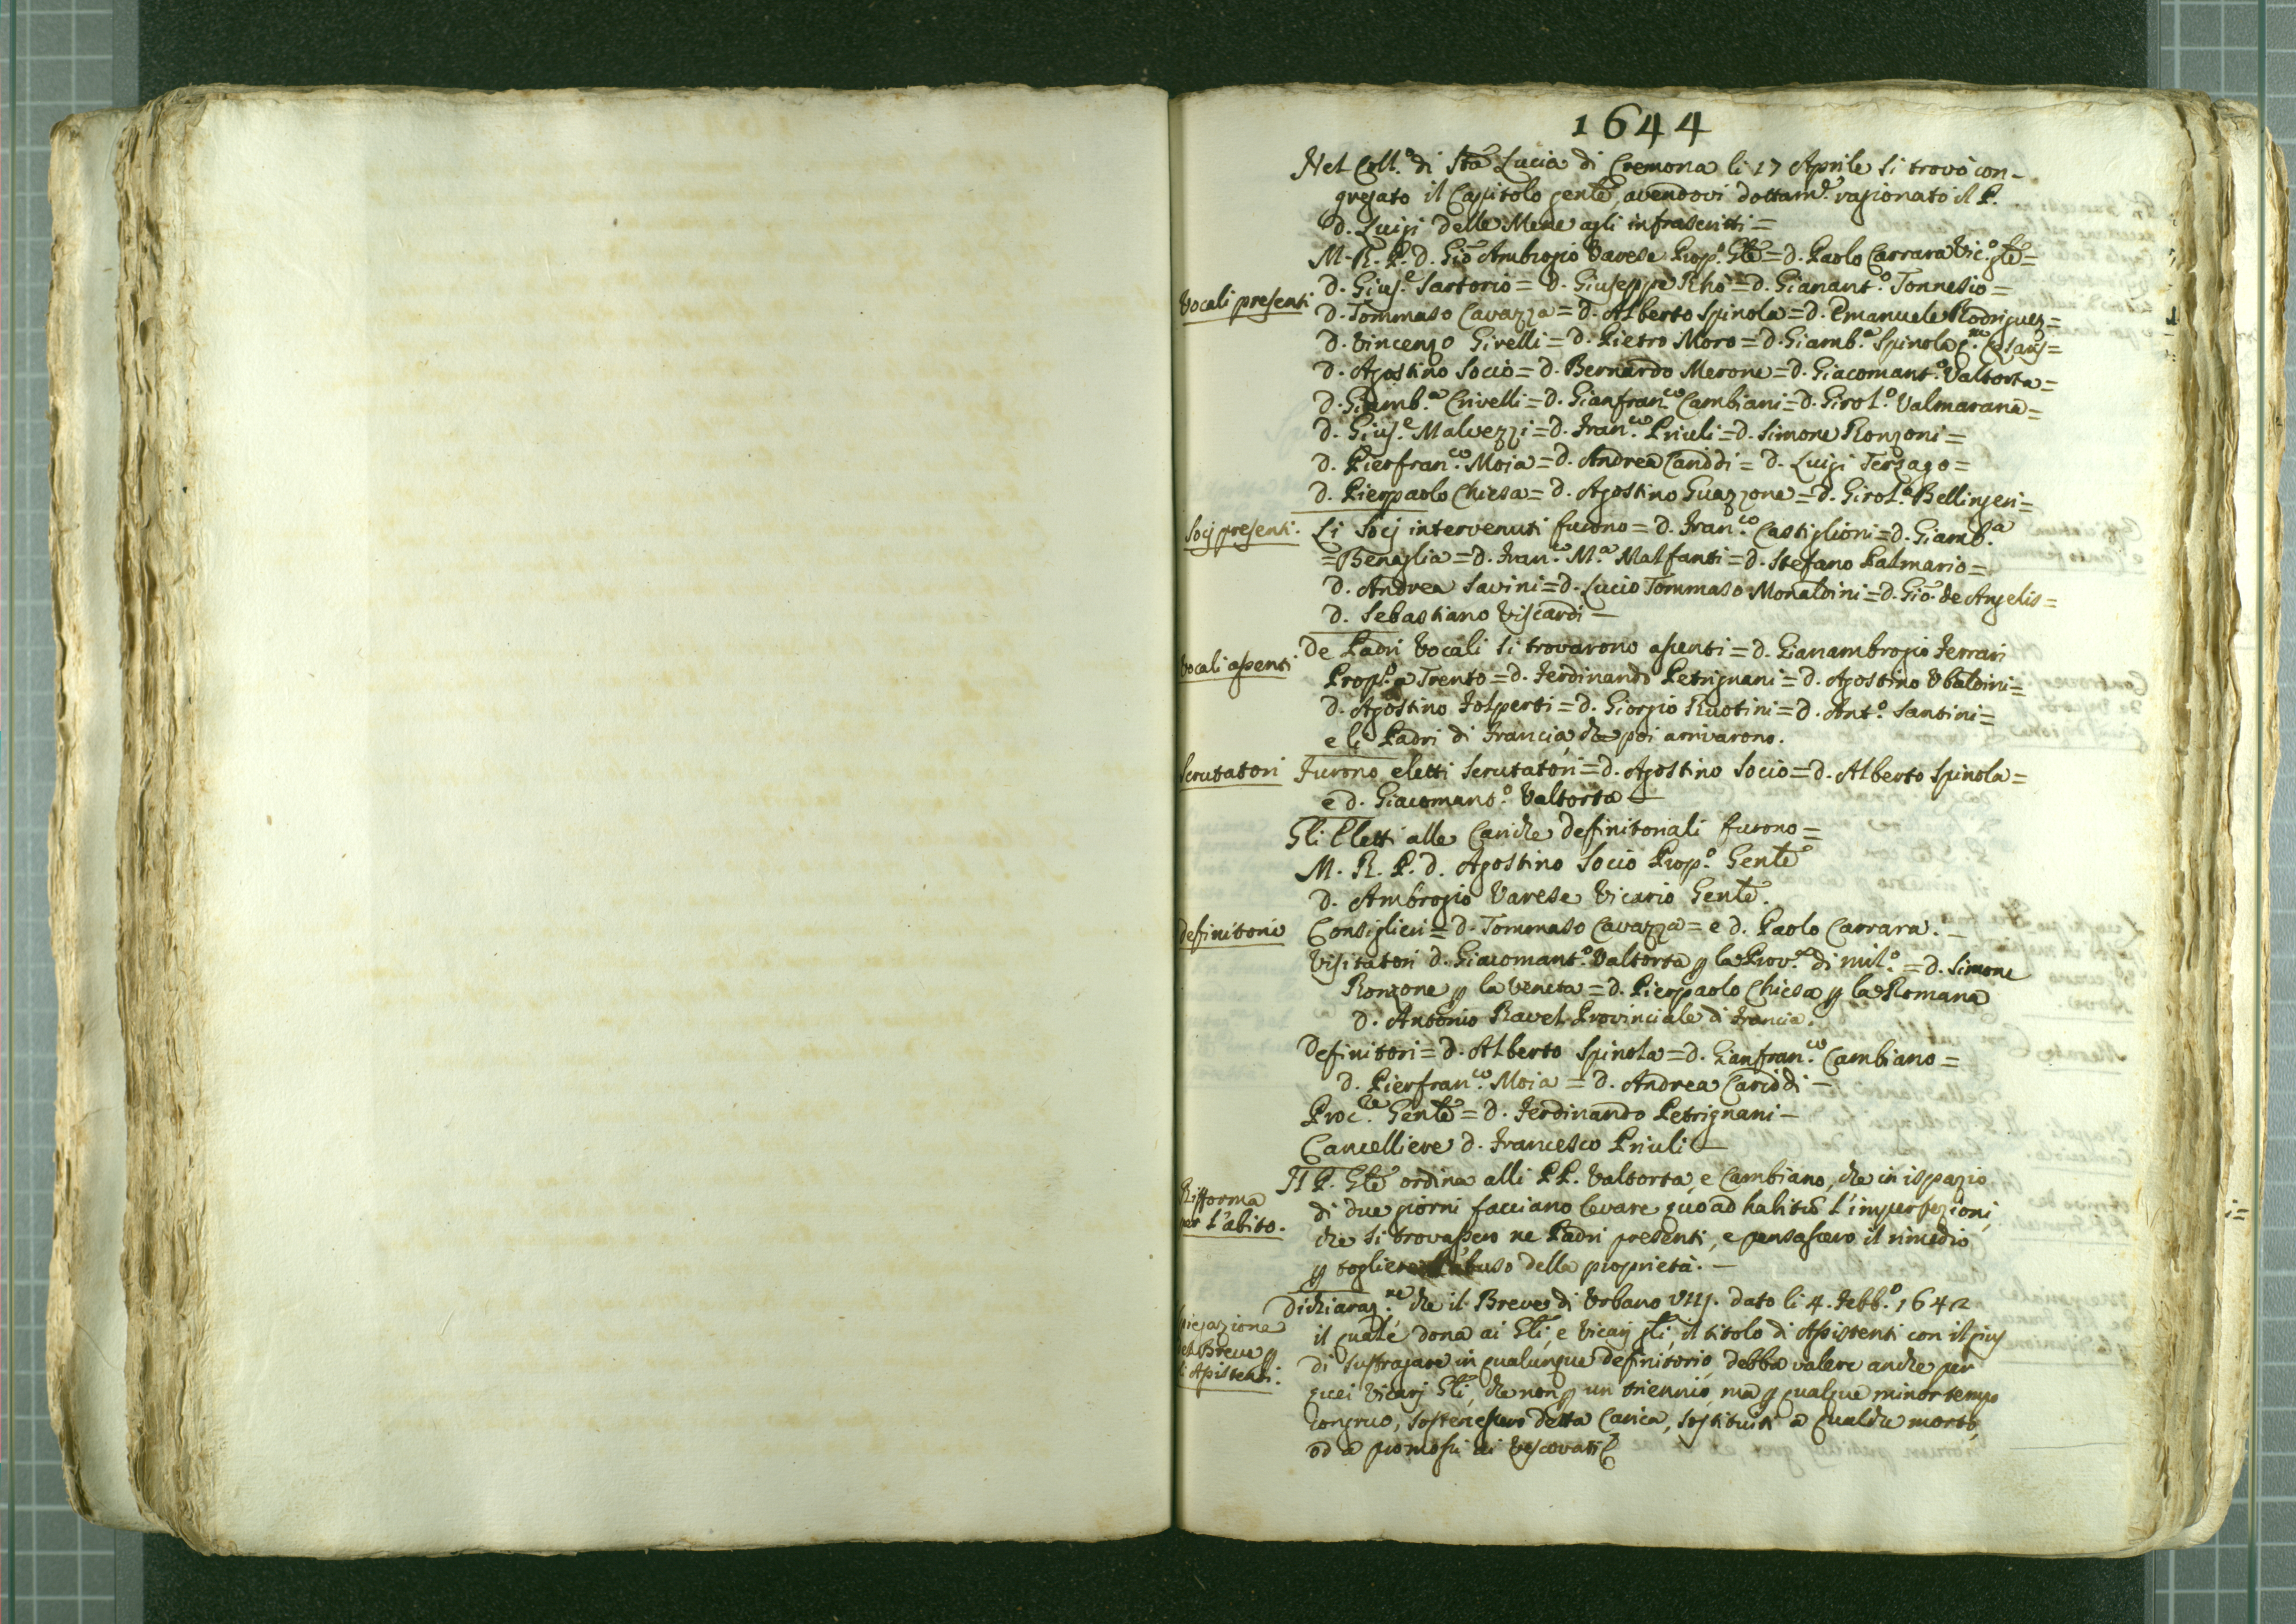 1644
Nel Coll.º di Sta Lucia di Cremona li 17 Aprile si trovò con-
gregato il Capitolo gente, avendovi dottam.e ragionato il P.
D. Luigi delle Mene agli infrascritti =
M. R. P. D. Gio Ambrogio Varese Prop.º Gle = D. Paolo Carrara Vic.º gle =
Vocali presenti
D. Gius.e Sartorio = D. Giuseppe Rhò = D. Gianant.º Tonnesio =
D. Tommaso Cavazza = D. Alberto Spinola = D. Emanuele Rodriguez =
D. Vincenzo Girelli = D. Pietro Moro = D. Giamb.a Spinola
D. Agostino Socio = D. Bernardo Merone = D. Giacomant.º Valtorta =
D. Giamb.a Crivelli = D. Gianfran.co Cambiani = D. Girol.º Valmarana =
D. Gius.e Malvezzi = D. Fran.co Priuli = D. Simone Ronzoni =
D. Pierfran.co Moia = D. Andrea Cariddi = D. Luigi Terzago =
D. Pierpaolo Chiesa = D. Agostino Guazzone = D. Girol.º Bellingeri =
Socj presenti.
Li Socj intervenuti furono = D. Fran.co Castiglioni = D. Giamb.a
= Benaglia = D. Fran.co M.a Malfanti = D. Stefano Palmario =
D. Andrea Savini = D. Lucio Tommaso Monaldini = D. Gio. de Angelis =
D. Sebastiano Viscardi –
Vocali assenti
De Padri Vocali si trovarono assenti = D. Gianambrogio Ferrari
Prop.º a Trento = D. Ferdinando Petrignani = D. Agostino Ubaldini =
D. Agostino Folperti = D. Giorgio Ruotini = D. Ant.º Santini =
e li Padri di Francia, che poi arrivarono.
Scrutatori
Furono eletti Scrutatori = D. Agostino Socio = D. Alberto Spinola =
e D. Giacomant.º Valtorta –
Gli Eletti alle Cariche definitoriali furono =
M. R. P. D. Agostino Socio Prop.º Gente
D. Ambrogio Varese Vicario Gente.
definitorio
Consiglieri = D. Tommaso Cavazza = e D. Paolo Carrara. –
Visitatori D. Giacomant.º Valtorta p la Prov.a di mil.º = D. Simone
Ronzone p la Veneta = D. Pierpaolo Chiesa p la Romana
D. Antonio Ravel Provinciale di Francia.
Definitori = D. Alberto Spinola = D. Gianfran.co Cambiano =
D. Pierfran.co Moia = D. Andrea Cariddi –
Proc.re Gente = D. Ferdinando Petrignani –
Cancelliere D. Francesco Priuli –
Rifforma
per l'abito.
Il P. Gle ordina alli PP. Valtorta, e Cambiano, che in ispazio
di due giorni facciano levare quo ad habitū l'imperfezioni,
che si trovassero ne Padri presenti, e pensassero il rimedio
p togliere l'abuso della proprietà. –
Spiegazione
del Breve p
li Assistenti.
Dichiaraz.ne che il Breve di Urbano VIII. dato li 4. Febb.º 1642
il quale dona ai Gli, e Vicarj gli, il titolo di Assistenti con il jus
di suffragare in qualunque definitorio, debba valere anche per
quei Vicarj Gli, che non p un triennio, ma p qualque minor tempo
congruo, sostenessero detta Carica, sostituiti a qualche morto,
od a promossi ai Vescovati